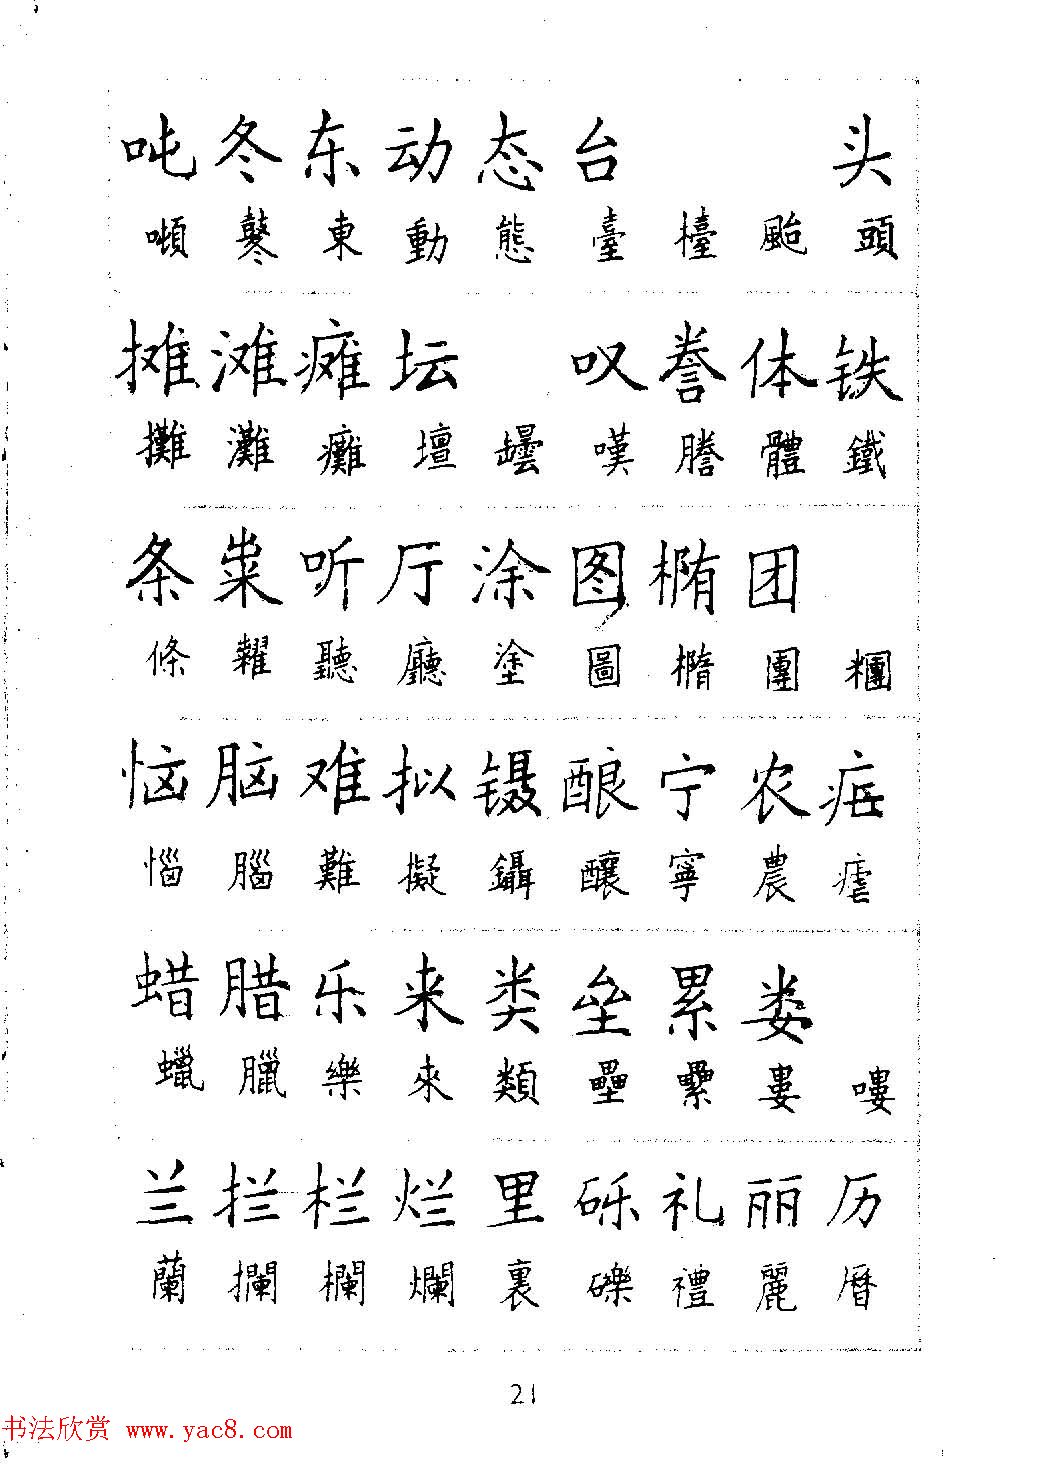 吨 冬 东 动 态 台 头
噸 鼕 東 動 態 臺 檯 颱 頭
摊 滩 瘫 坛 叹 誊 体 铁
攤 灘 癱 壇 罎 嘆 謄 體 鐵
条 粜 听 厅 涂 图 椭 团
條 糶 聽 廳 塗 圖 橢 團 糰
恼 脑 难 拟 镊 酿 宁 农 疟
惱 腦 難 擬 鑷 釀 寧 農 瘧
蜡 腊 乐 来 类 垒 累 娄
蠟 臘 樂 來 類 壘 纍 婁 嘍
兰 拦 栏 烂 里 砾 礼 丽 历
蘭 攔 欄 爛 裏 礫 禮 麗 曆
21
书法欣赏 www.yac8.com